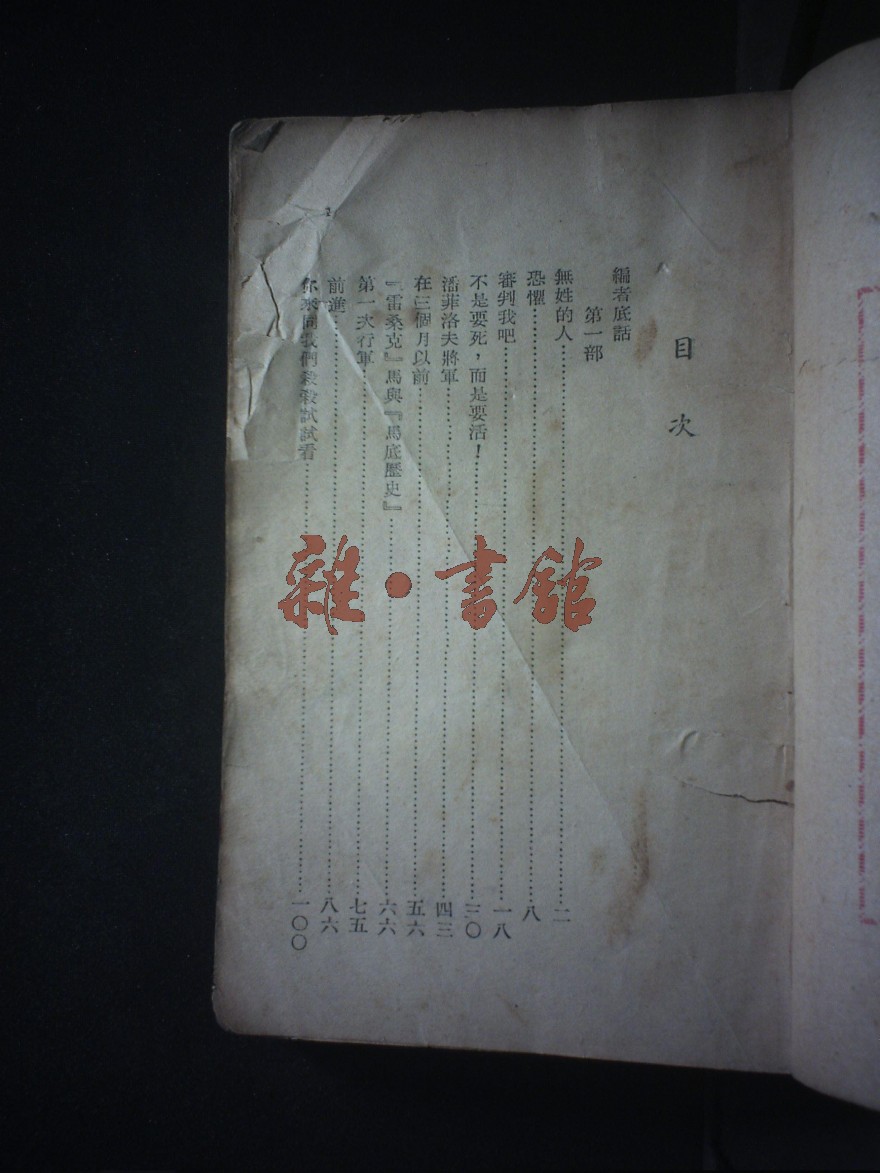 目次
編者底話
第一部
無姓的人……二
恐懼……八
審判我吧……一八
不是要死，而是要活！……三〇
潘菲洛夫將軍……四三
在三個月以前……五六
『雷桑克』馬與『馬底歷史』……六六
第一次行軍……七五
前進……八六
你來同我們殺殺試試看……一〇〇
雜·書館